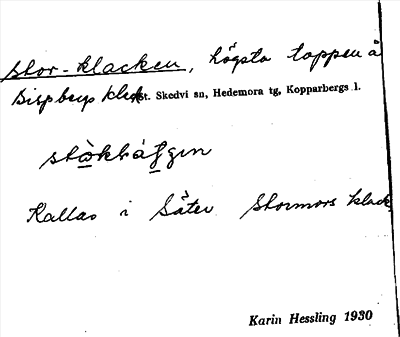 Stor-klacken, högsta toppen å
Bispbergs klack St. Skedvi sn, Hedemora tg, Kopparbergs l.
Kallas i Säter Stormors klack
Karin Hessling 1930